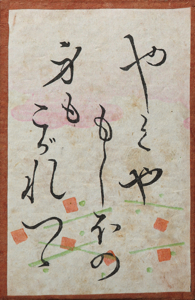 やくや
もしほの
身も
こがれつゝ